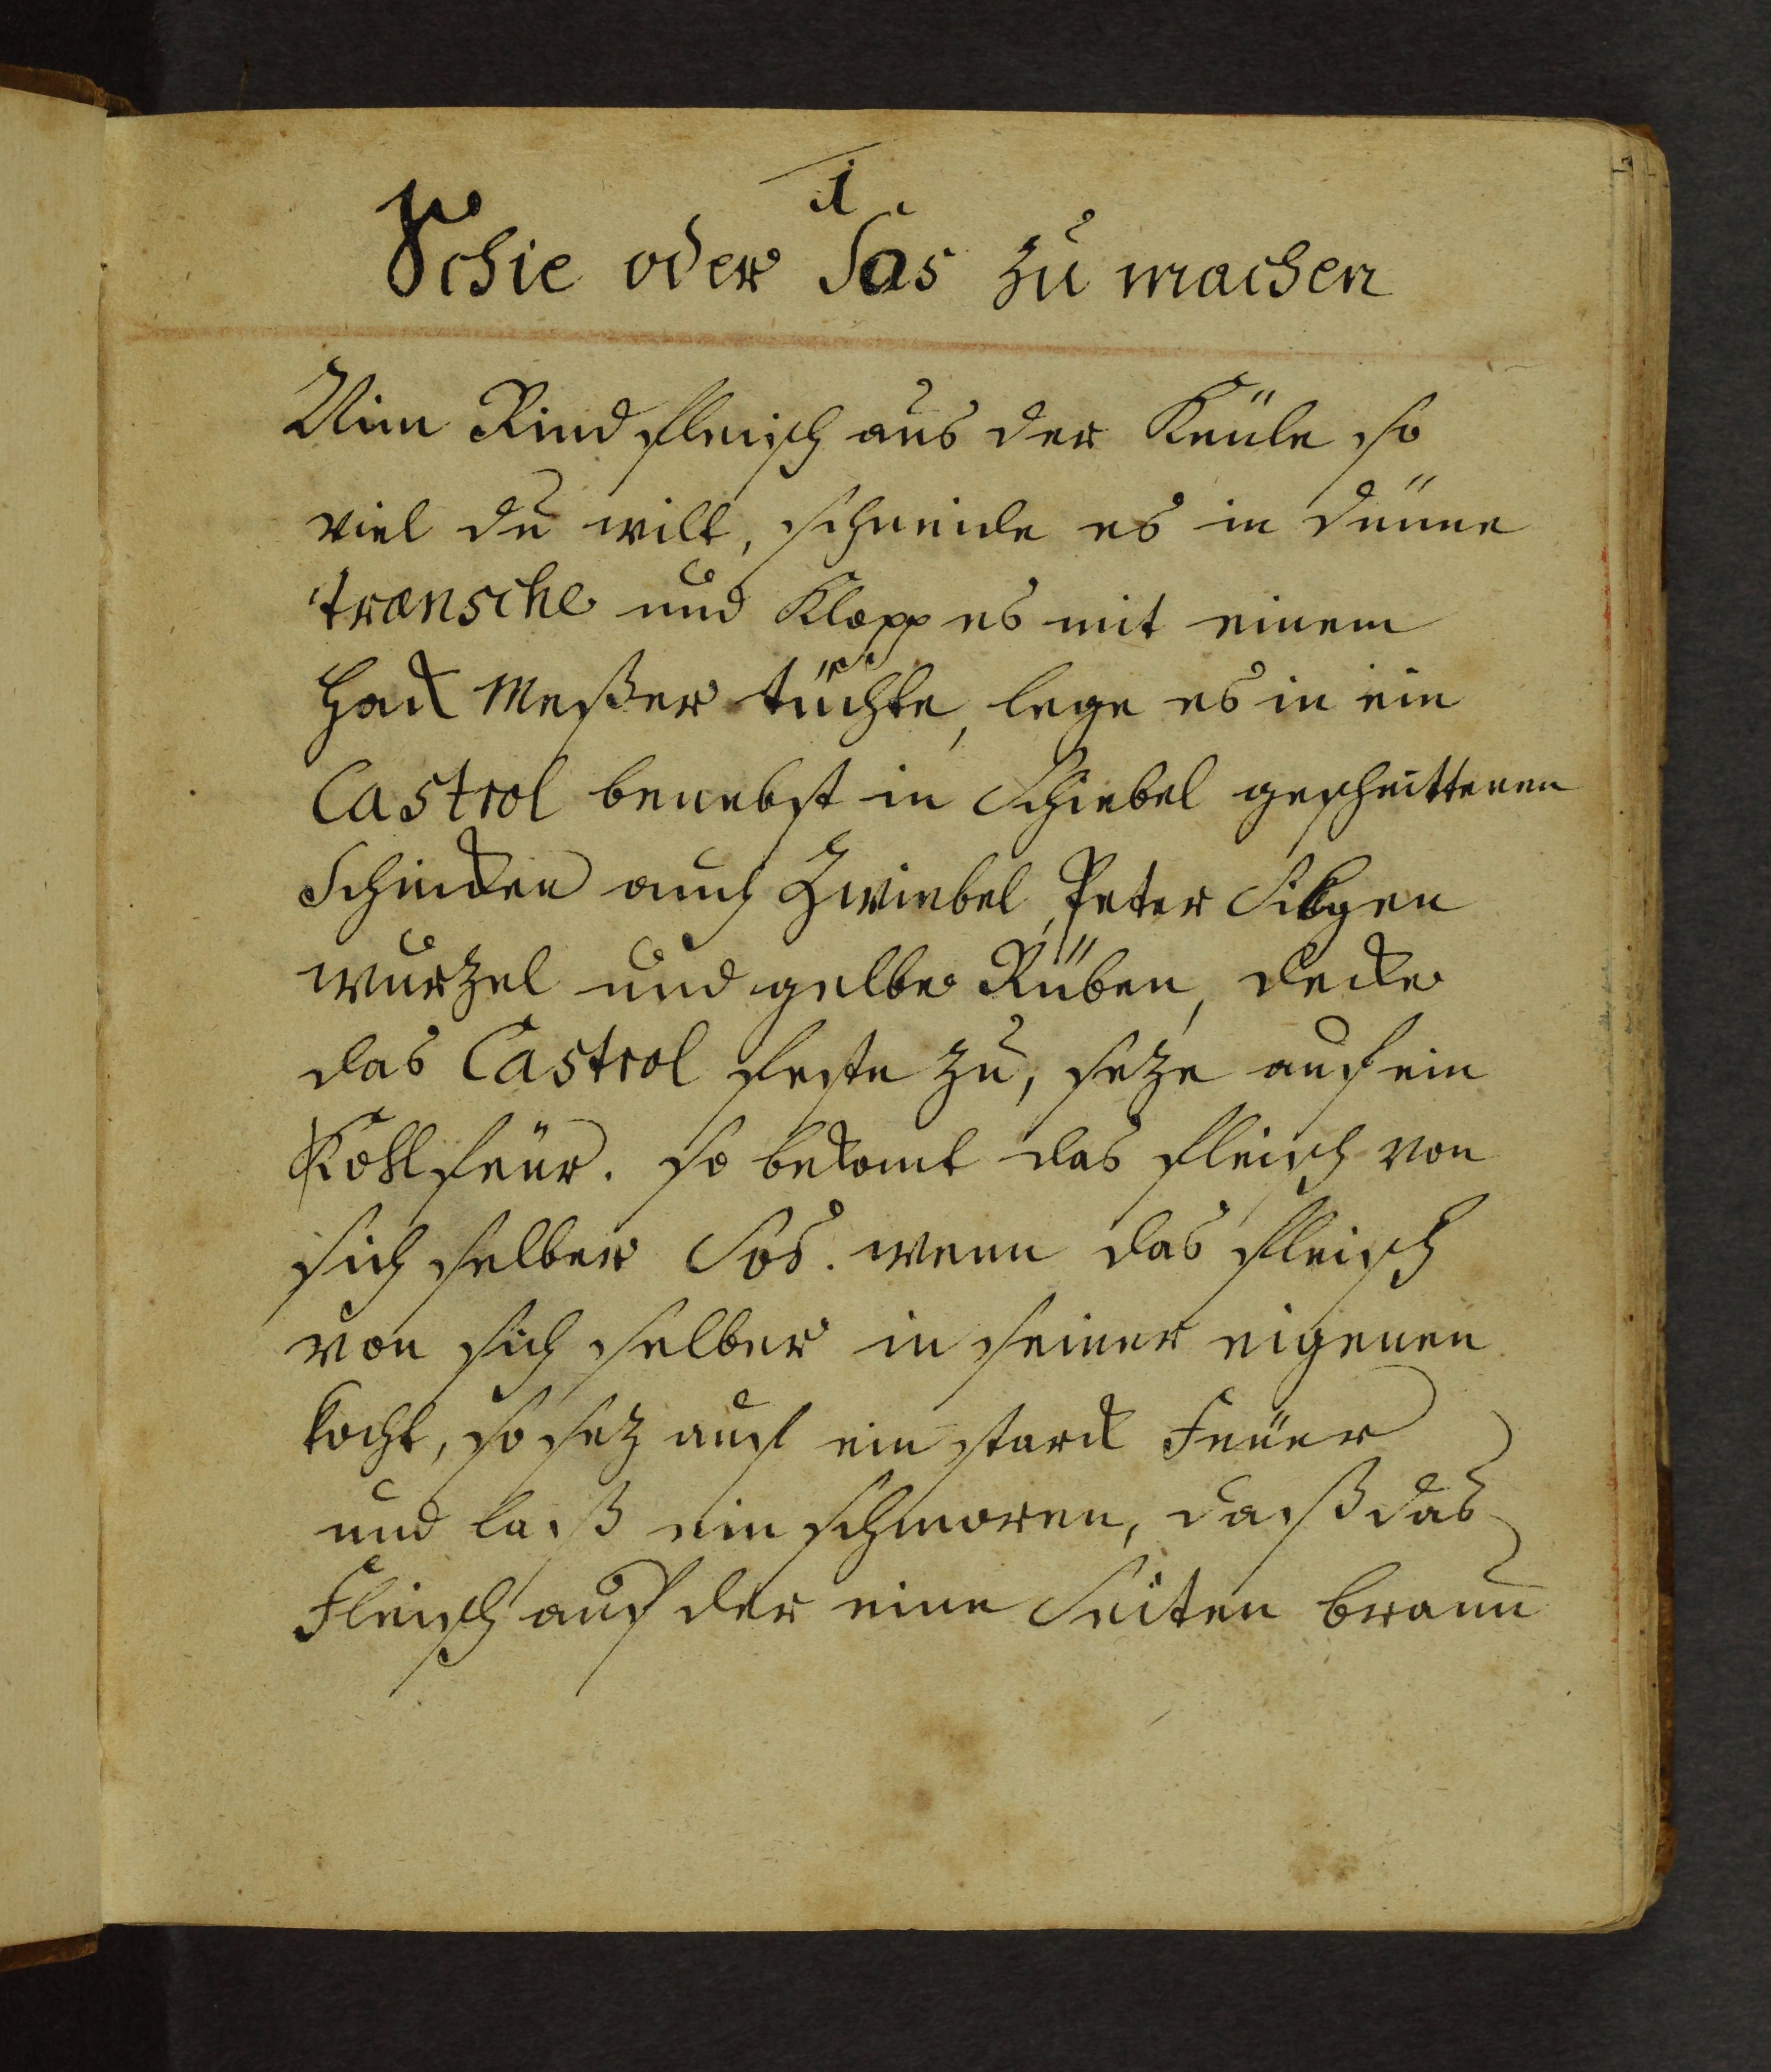 1
Schie oder Sos zu machen
Nim Rindfleisch aus der Keüle so
viel du wilt, schneide es in dünne
transche und Klopp es mit einem
Hack Meßer tüchte, lege es in ein
Castrol benebst in Schiebel geschnittenen
Schincken auch Zwiebel, Peter Silgen
wurzel und gelbe Rüben, decke
das Castrol feste zu, seze auf ein
Kohlfeür. so bekomt das fleisch von
sich selber Sos. wenn das fleisch
von sich selber in seiner eigenen
kocht, so sez auf ein starck Feüer
und laß ein schmoren, daß das
Fleisch auf der eine Seiten braun